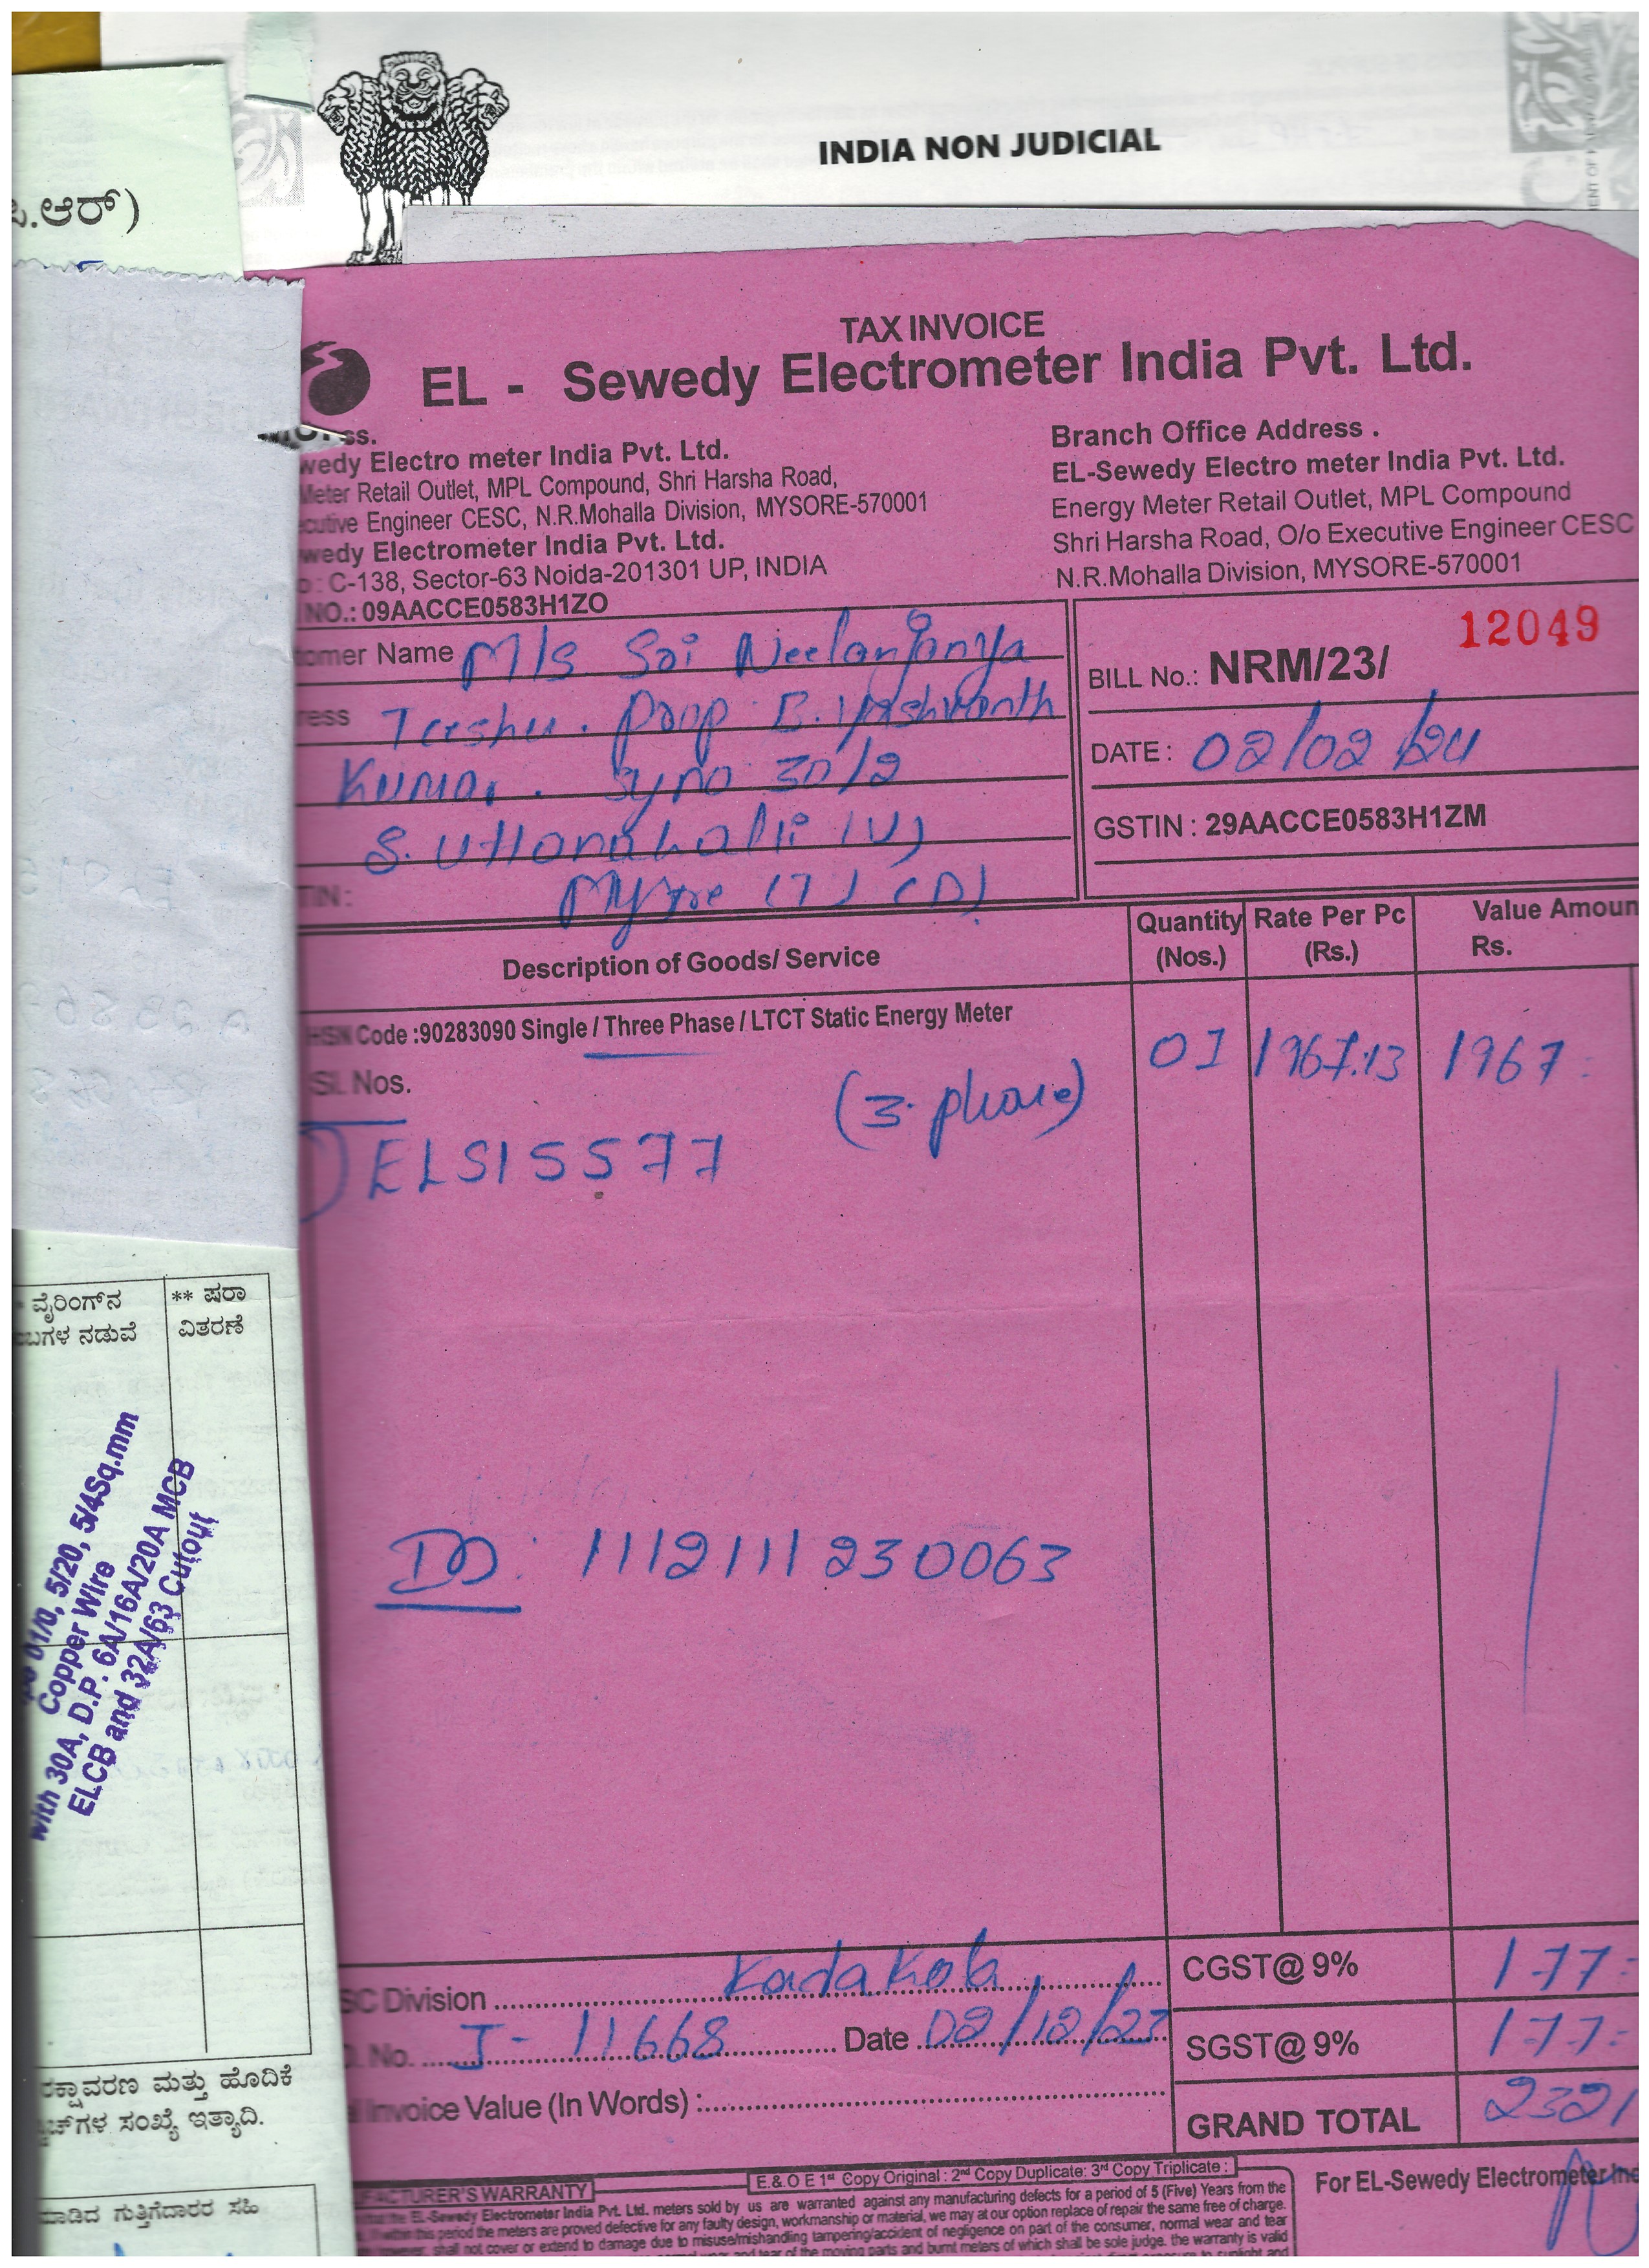 INDIA NON JUDICIAL
.ಆರ್)
TAX INVOICE
EL - Sewedy Electrometer India Pvt. Ltd.
ss.
wedy Electro meter India Pvt. Ltd.
Meter Retail Outlet, MPL Compound, Shri Harsha Road,
cutive Engineer CESC, N.R.Mohalla Division, MYSORE-570001
wedy Electrometer India Pvt. Ltd.
: C-138, Sector-63 Noida-201301 UP, INDIA
NO.: 09AACCE0583H1ZO
Branch Office Address .
EL-Sewedy Electro meter India Pvt. Ltd.
Energy Meter Retail Outlet, MPL Compound
Shri Harsha Road, O/o Executive Engineer CESC
N.R.Mohalla Division, MYSORE-570001
tomer Name M/s Sai Neelanjanya
ress Teeshu. Prop B. Yashwanth
Kumar. Sy no 30/2
S. Uttanahalli (V)
TIN: Mysore (T) (D)
BILL No.: NRM/23/ 12049
DATE: 02/02/24
GSTIN : 29AACCE0583H1ZM
Description of Goods/ Service
Quantity (Nos.)
Rate Per Pc (Rs.)
Value Amoun
Rs.
HSN Code :90283090 Single / Three Phase / LTCT Static Energy Meter
Sl. Nos.
(3. phase)
01 1967.13 1967
ELS15577
DO: 1112111230063
ವೈರಿಂಗ್‌ನ
ಬಗಳ ನಡುವೆ
** ಷರಾ
ವಿತರಣೆ
01/0, 5/20, 5/4Sq.mm
Copper Wire
with 30A, D.P. 6A/16A/20A MCB
ELCB and 32A/63 Cutout
SC Division Kadakola
CGST@ 9% 177
No. J-11668 Date 02/12/23
SGST@ 9% 177
Invoice Value (In Words) :
GRAND TOTAL 2321
ರಕ್ಷಾವರಣ ಮತ್ತು ಹೊದಿಕೆ
ಚ್‌ಗಳ ಸಂಖ್ಯೆ ಇತ್ಯಾದಿ.
ಮಾಡಿದ ಗುತ್ತಿಗೆದಾರರ ಸಹಿ
E.& O E 1st Copy Original : 2nd Copy Duplicate: 3rd Copy Triplicate :
FACTURER'S WARRANTY
For EL-Sewedy Electrometer
the EL-Sewedy Electrometer India Pvt. Ltd. meters sold by us are warranted against any manufacturing defects for a period of 5 (Five) Years from the
If within this period the meters are proved defective for any faulty design, workmanship or material, we may at our option replace of repair the same free of charge.
however, shall not cover or extend to damage due to misuse/mishandling tampering/accident of negligence on part of the consumer, normal wear and tear
wear and tear of the moving parts and burnt meters of which shall be sole judge. the warranty is valid